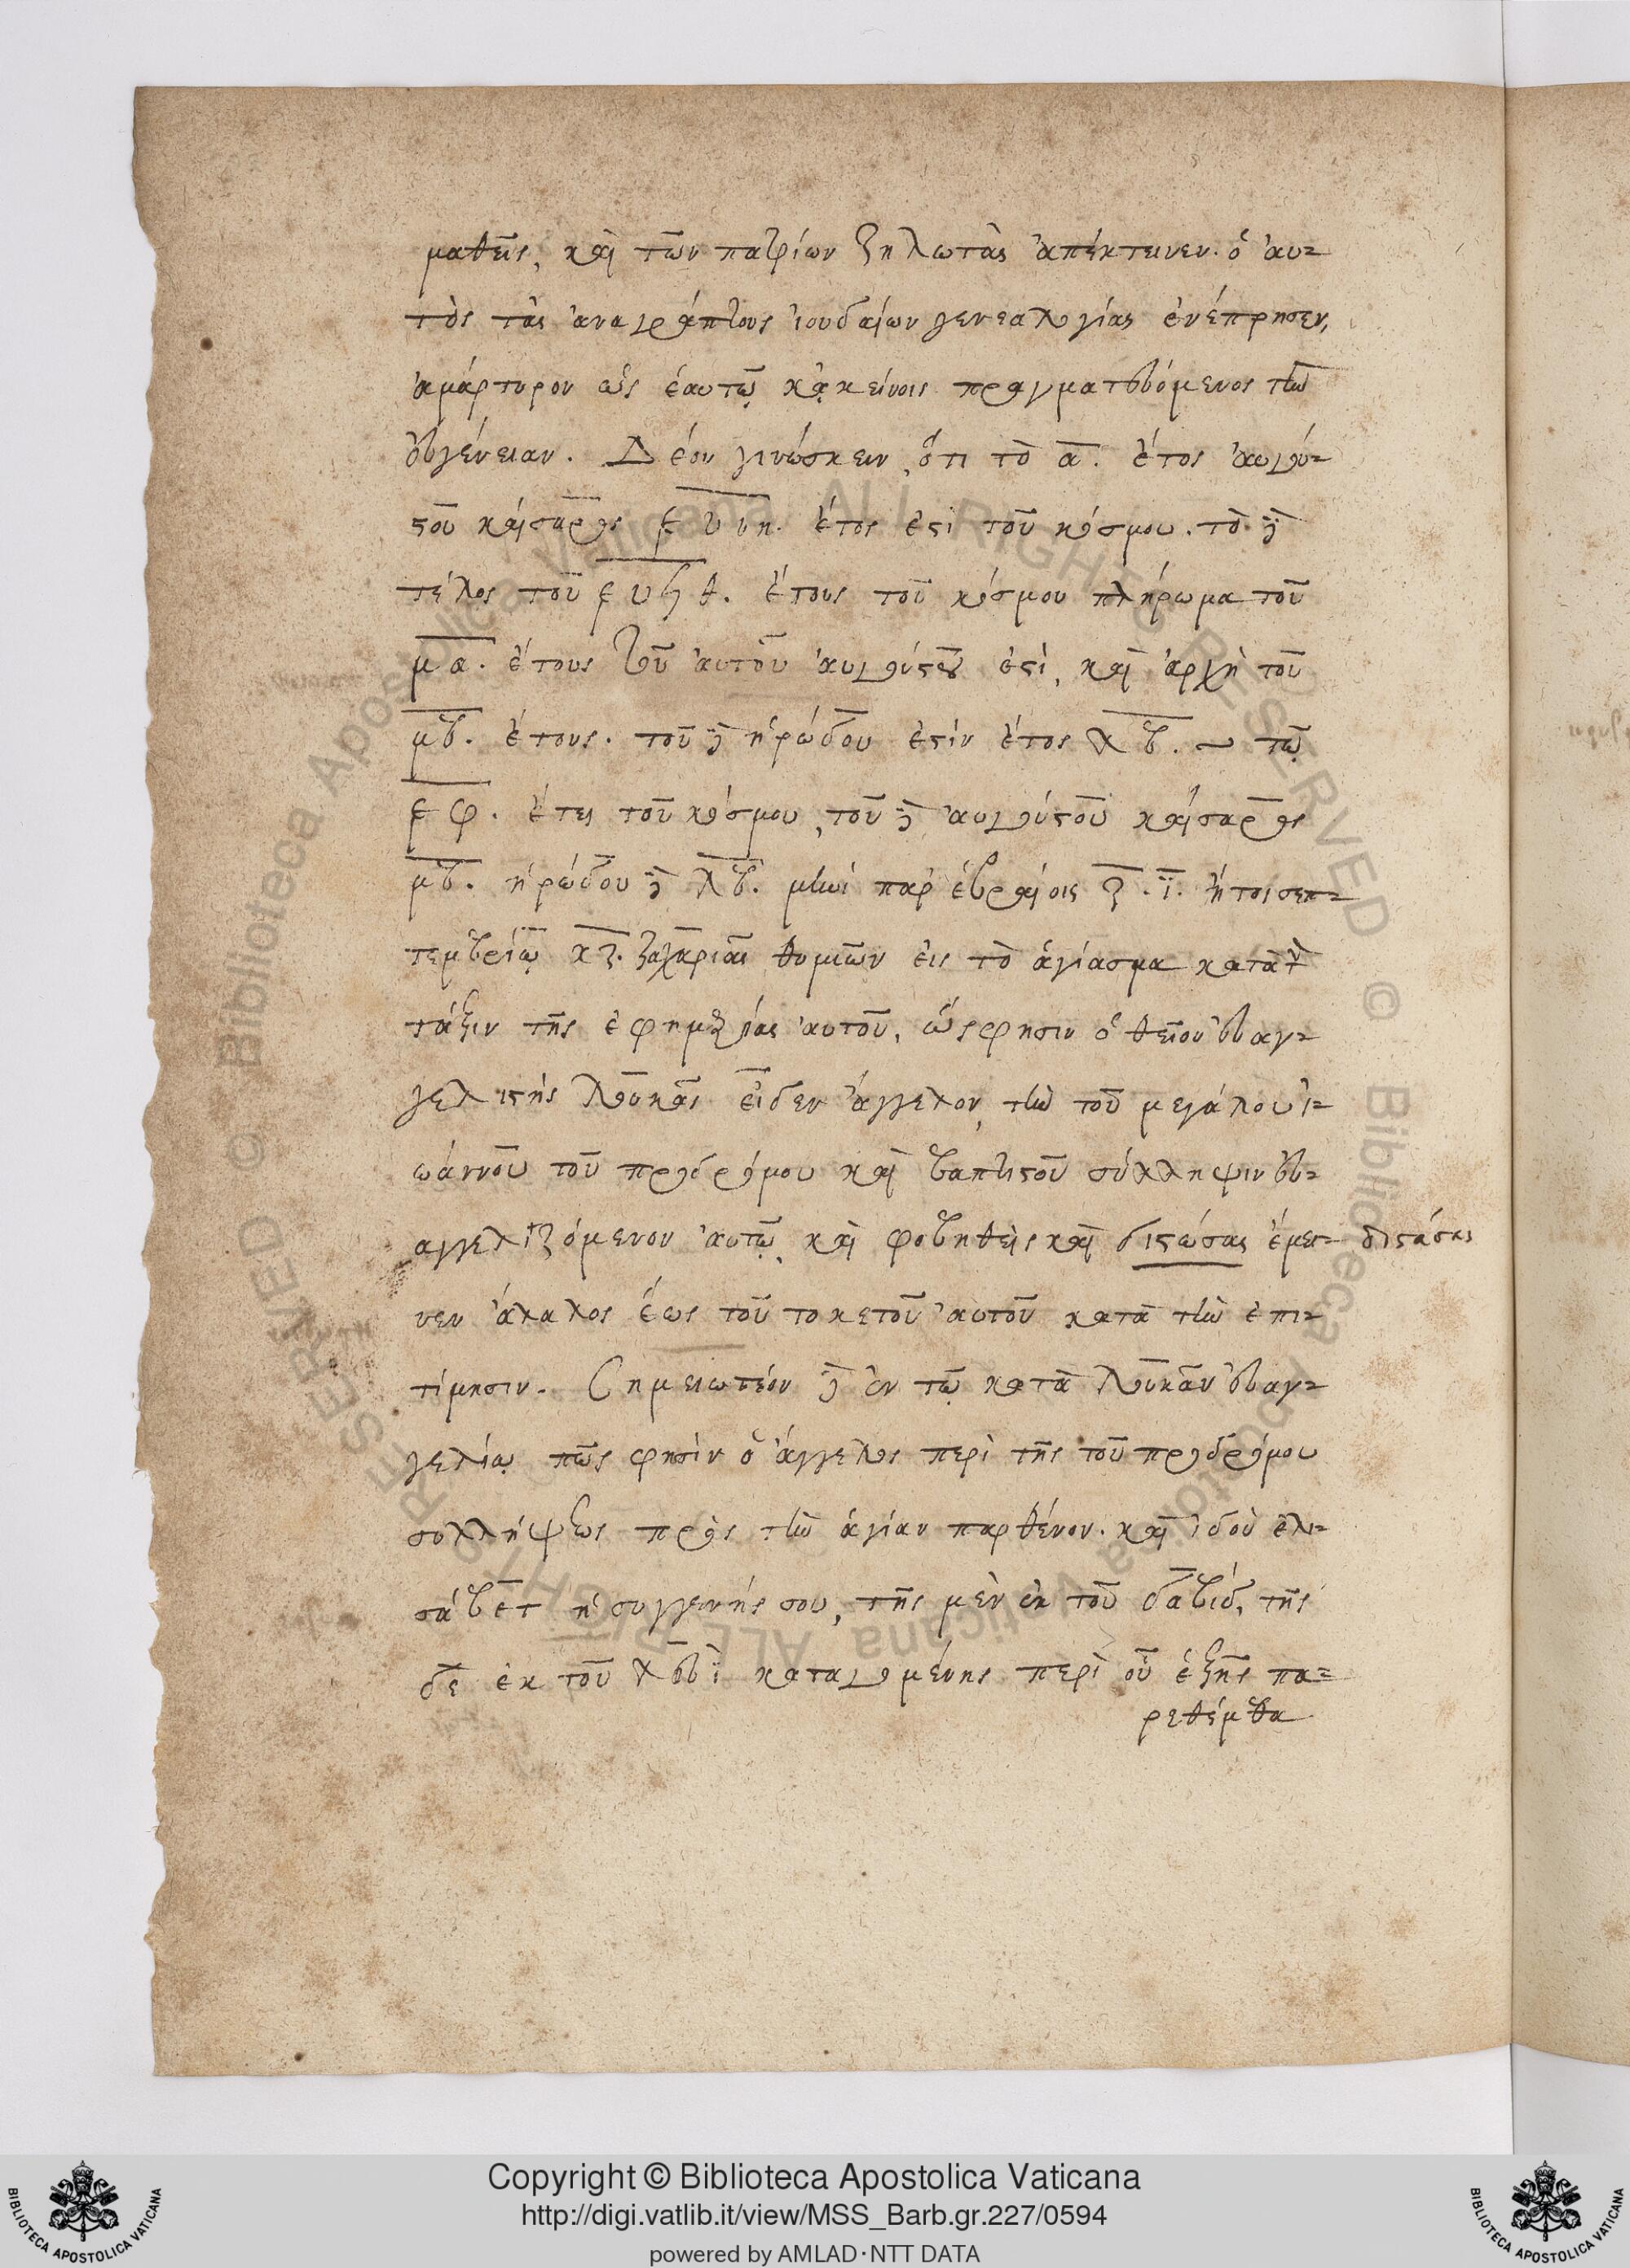 μαθεῖς, καὶ τῶν πατρίων ζηλωτὰς ἀπέκτεινεν. ὁ αὐ=
τὸς τὰς ἀναγράπτους ἰουδαίων γενεαλογίας ἐνέπρησεν,
ἀμάρτυρον ὡς ἑαυτῷ κἀκείνοις πραγματευόμενος τὴν
εὐγένειαν. Δέον γινώσκειν, ὅτι τὸ α. ἔτος αὐγού=
στου καίσαρος ͵ε υ νη. ἔτος ἐστὶ τοῦ κόσμου. τὸ δὲ
τέλος τοῦ ͵ε υ ϟ θ. ἔτους τοῦ κόσμου πλήρωμα τοῦ
μα. ἔτους τοῦ αὐτοῦ αὐγούστου ἐστὶ, καὶ ἀρχὴ τοῦ
μβ. ἔτους. τοῦ δὲ ἡρώδου ἐστὶν ἔτος λβ. ~ τῷ
͵ε φ. ἔτει τοῦ κόσμου, τοῦ δὲ αὐγούστου καίσαρος
μβ. ἡρώδου δὲ λβ. μηνὶ παρ' ἑβραίοις ζ. ϊ. ἤτοι σεπ=
τεμβρίῳ κζ. ζαχαρίας θυμιῶν εἰς τὸ ἁγίασμα κατὰ τὴν
τάξιν τῆς ἐφημερίας αὐτοῦ, ὥς φησιν ὁ θεῖος εὐαγ=
γελιστὴς λουκᾶς εἶδεν ἄγγελον, τὴν τοῦ μεγάλου ἰ=
ωάννου τοῦ προδρόμου καὶ βαπτιστοῦ σύλληψιν εὐ=
αγγελιζόμενον αὐτῷ, καὶ φοβηθεὶς καὶ διστώσας ἔμει= διστάσας
νεν ἄλαλος ἕως τοῦ τοκετοῦ αὐτοῦ κατὰ τὴν ἐπι=
τίμησιν. Σημειωτέον δὲ ἐν τῷ κατὰ λουκᾶν εὐαγ=
γελίῳ πῶς φησὶν ὁ ἄγγελος περὶ τῆς τοῦ προδρόμου
συλλήψεως πρὸς τὴν ἁγίαν παρθένον. καὶ ἰδοὺ ἐλι=
σάβετ ἡ συγγενής σου, τῆς μὲν ἐκ τοῦ δαβὶδ, τῆς
δὲ ἐκ τοῦ λευὶ καταγομένης περὶ οὗ ἑξῆς πα=
ρεθέμεθα
Copyright © Biblioteca Apostolica Vaticana
http://digi.vatlib.it/view/MSS_Barb.gr.227/0594
powered by AMLAD·NTT DATA